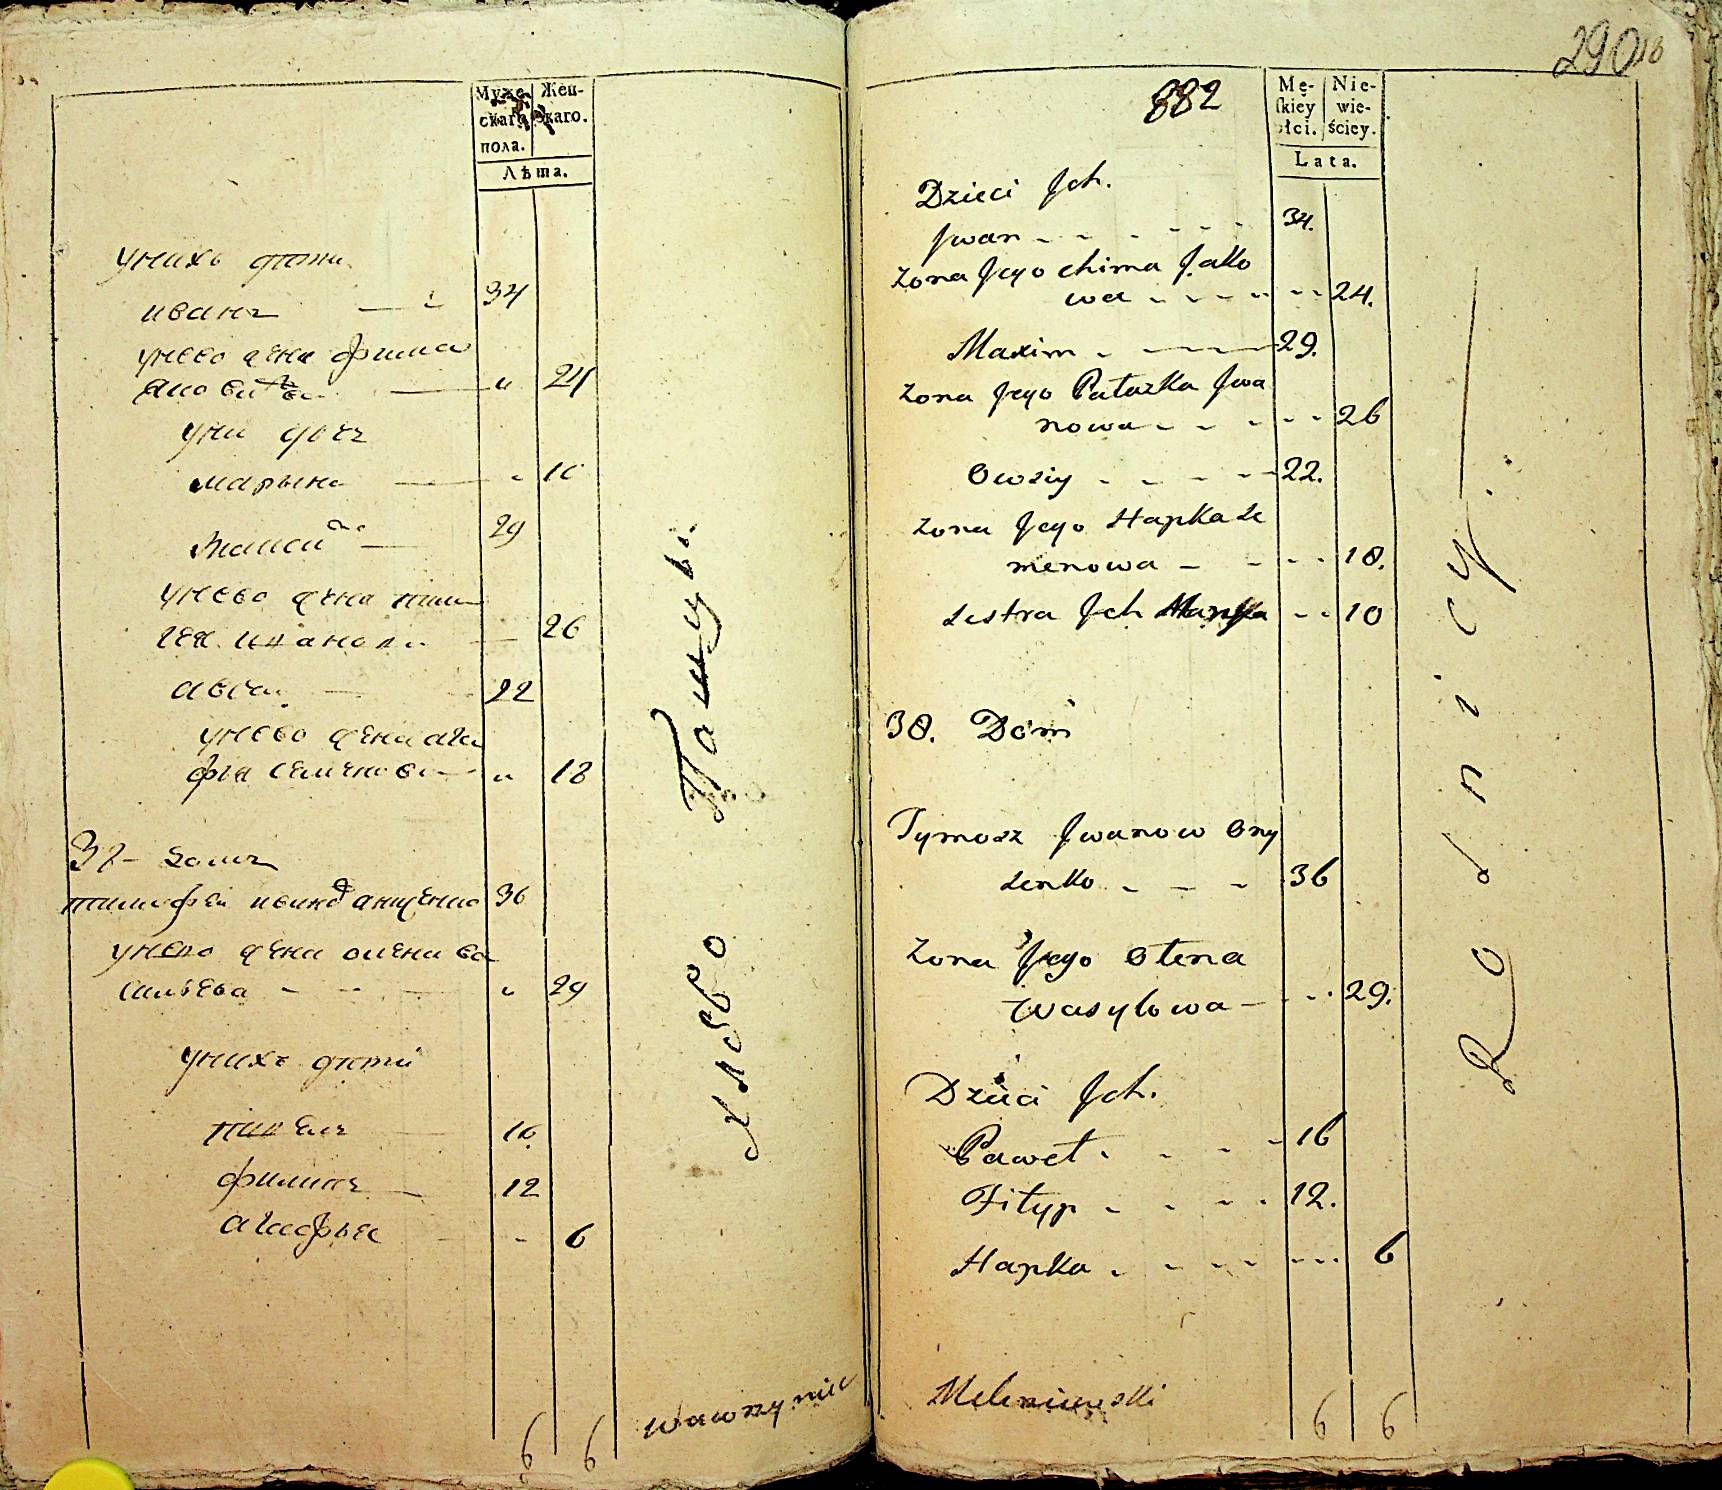 Муже-
скаго
пола.
Жен-
скаго.
Лѣта.
унихъ дѣти
иванъ 34
унево жена фима
24
уни дочь
марьина 10
29
унево жена пела
гея ивановa 26
авсей 22
унево жена ага
фия семенова 18
37 домъ
тимофей иванов анищенко 36
унево жена олена ва
сильева 29
унихъ дѣти
павелъ 16
филипъ 12
агафья 6
6 6
Хлѣбо Пашцы
Wawrzyniec
290
882
Mę-
skiey
płci.
Nie-
wie-
ściey.
Lata.
Dzieci Jch.
Jwan 34.
Zona Jego Chima Jako
wa 24.
Maxim 29.
Zona Jego Pałazka Jwa
nowa 26
Owsiy 22.
Zona Jego Hapka Se
menowa 18.
Sestra Jch Marya 10
38. Dom
Tymosz Jwanow Ony
senko 36
Zona Jego Olena
Wasylowa 29.
Dzieci Jch.
Paweł 16
Filyp 12.
Hapka 6
Meleniewski
6 6
Rolnicy